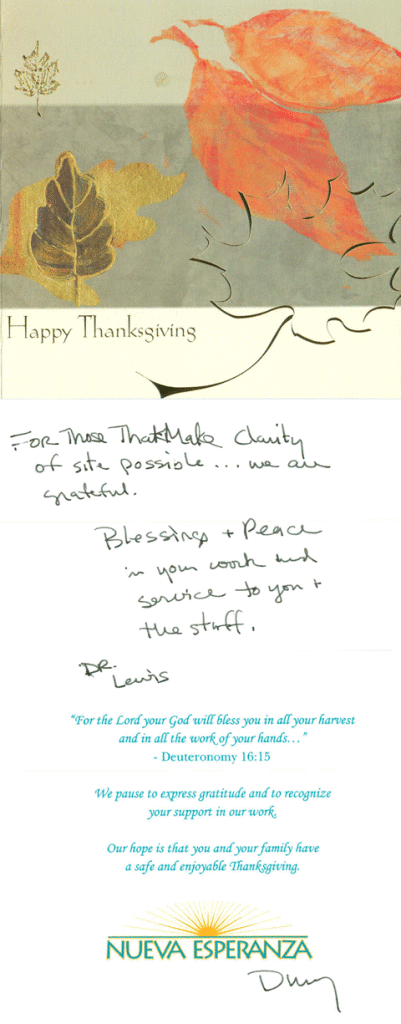 Happy Thanksgiving
For Those That Make Clarity
of site possible... we are
grateful.
Blessings + Peace
in your work and
service to you +
the staff.
DR.
Lewis
"For the Lord your God will bless you in all your harvest
and in all the work of your hands…"
- Deuteronomy 16:15
We pause to express gratitude and to recognize
your support in our work.
Our hope is that you and your family have
a safe and enjoyable Thanksgiving.
NUEVA ESPERANZA